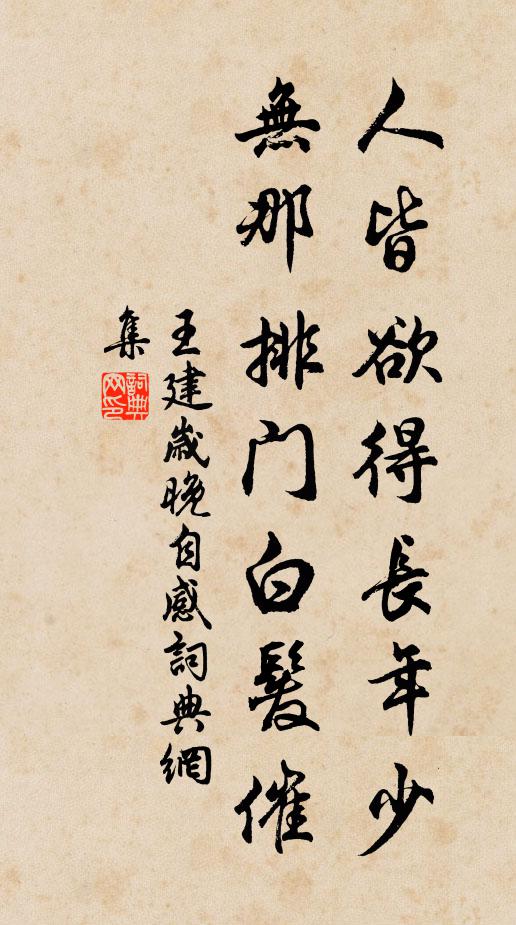 人皆欲得長年少
無那排门白髮催
王建歲晚自感詞典網
集
詞典网印